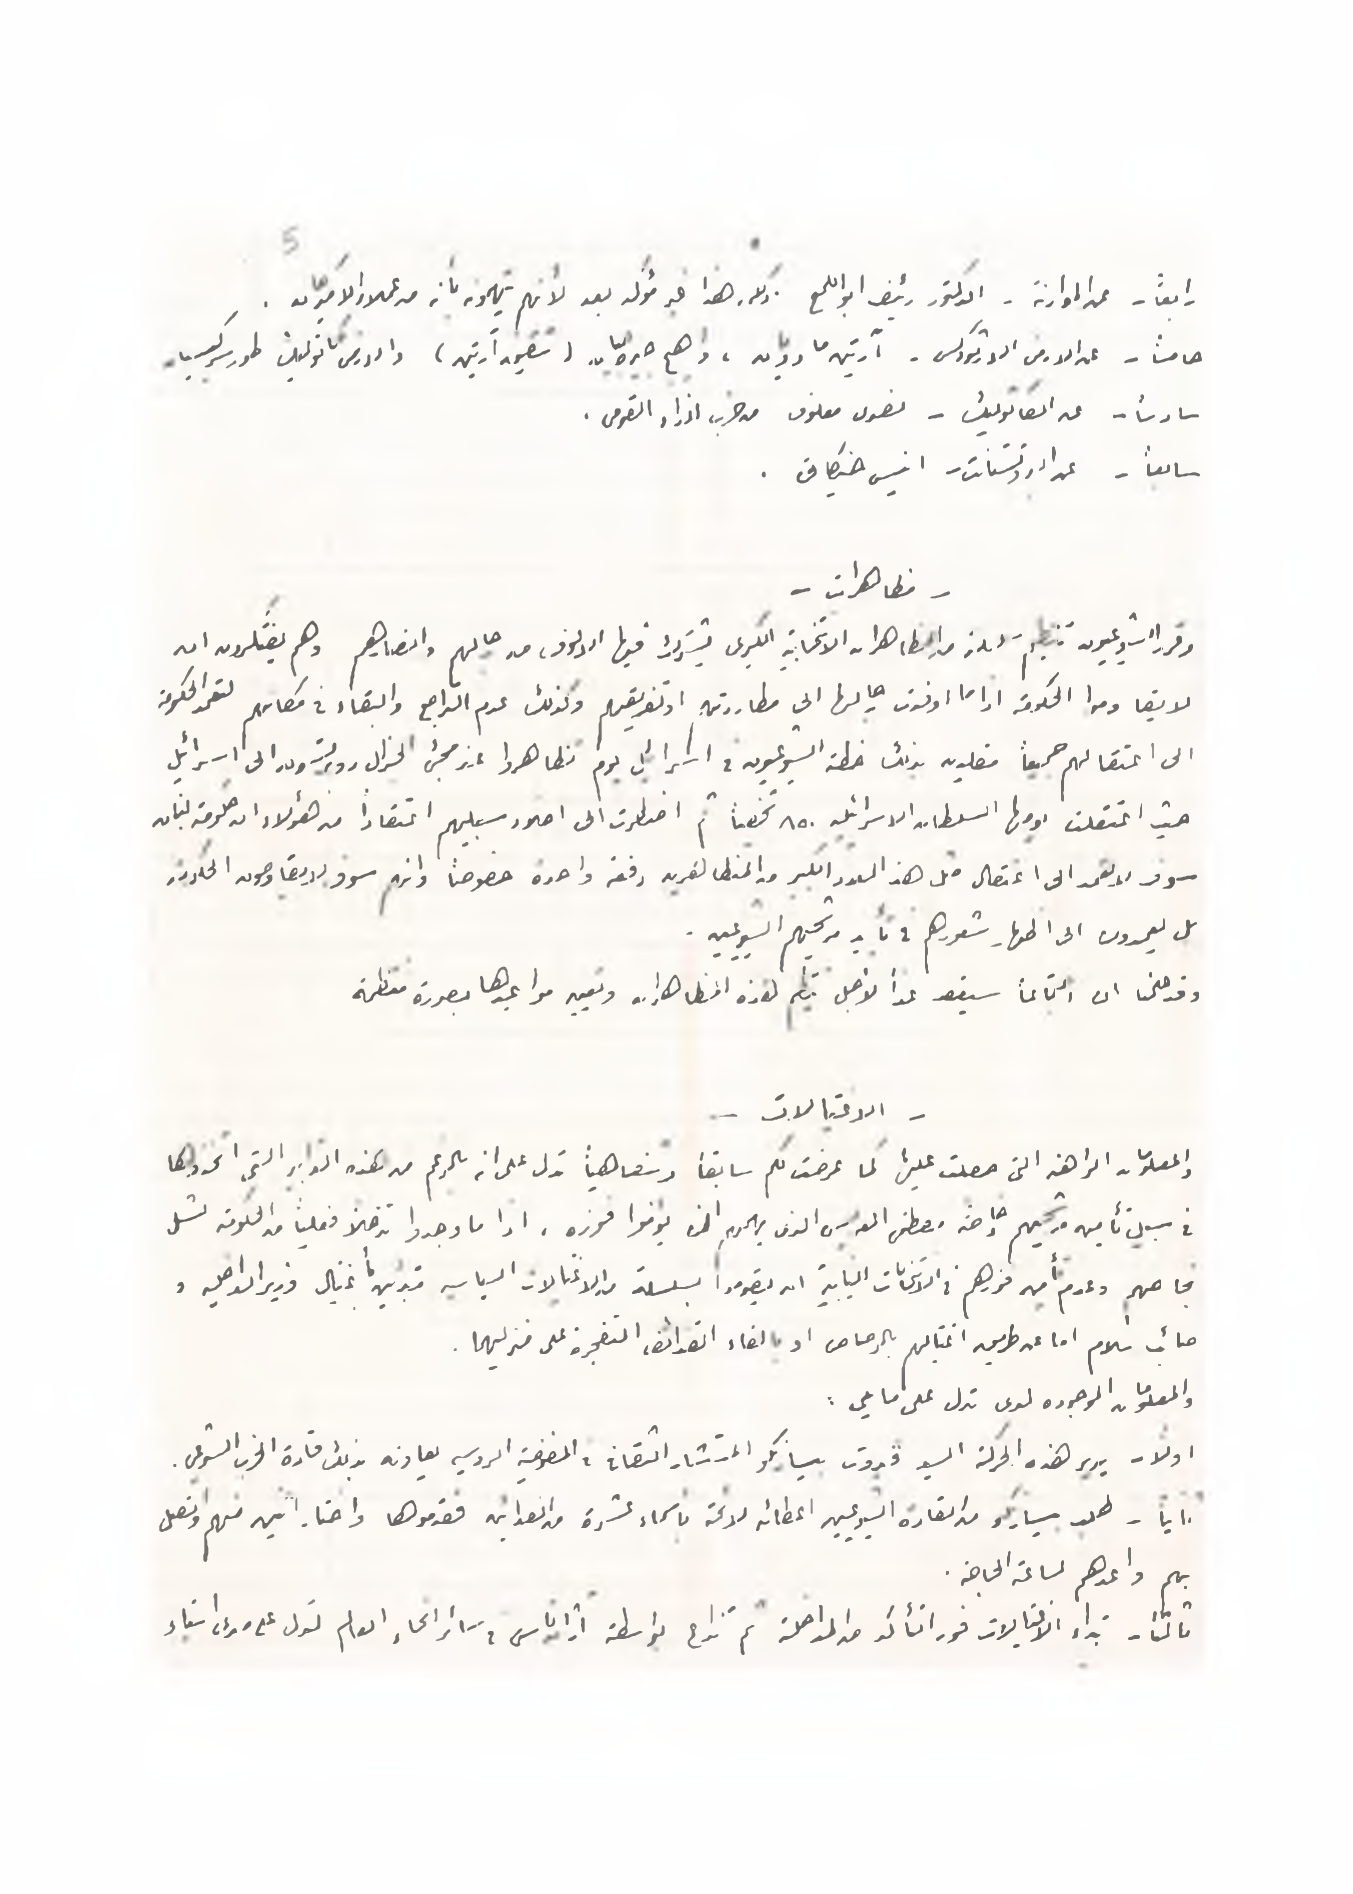 5
رابعاً - عن الموارنة - الدكتور رئيف ابو اللمع ولكن هذا غير مؤكد بعد لأنهم يتهمونه بأنه من عملاء الاميركان .
خامساً - عن الارمن الارثوذكس - آرتين مادويان ، و ( شقيق آرتين ) والارمن كاثوليك
سادساً - عن الكاثوليك - نصري معلوف من حزب النداء القومي .
سابعاً - عن البروتستانت - انيس .
- مظاهرات -
وقرر الشيوعيون تنظيم سلسلة من المظاهرات الانتخابية الكبرى يشترك فيها الالوف من رجالهم وانصارهم وهم يفتكرون ان
لا يقاوموا الحكومة اذا ما اوفدت رجالها الى مطاردتهم او تفريقهم وكذلك عدم التراجع والبقاء في مكانهم لتعمد الحكومة
الى اعتقالهم جميعاً مقلدين بذلك خطة الشيوعيون في اسرائيل يوم تظاهروا عند مجيء الجنرال روبرتسون الى اسرائيل
حيث اعتقلت يومها السلطات الاسرائيلية ٨٥٠ شخصاً ثم اضطرت الى اخلاء سبيلهم اعتقاداً من هؤلاء ان حكومة لبنان
سوف لا تعمد الى اعتقال مثل هذا العدد الكبير من المتظاهرين دفعة واحدة خصوصاً وانهم سوف لا يقاومون الحكومة
بل يعمدون الى اظهار شعورهم في تأييد مرشحيهم الشيوعيين .
وقد علمنا ان اجتماعاً سيعقد غداً لاجل تنظيم هذه المظاهرات وتعيين مواعيدها بصورة منظمة
- الاغتيالات -
والمعلومات الراهنة التي حصلت عليها كما عرضت لكم سابقاً وشفاهياً تدل على انه بالرغم من هذه التدابير التي اتخذوها
في سبيل تأمين مرشحيهم وخاصة مصطفى العريس الذي يهمهم ان يؤمنوا فوزه ، اذا ما وجدوا تدخلاً فعلياً من الحكومة لشل
نجاحهم وعدم تأمين فوزهم في الانتخابات النيابية ان يقوموا بسلسلة من الاغتيالات السياسية مبتدئين بأغتيال وزير الداخلية و
صائب سلام اما عن طريق اغتيالهم بالرصاص او بالقاء القذائف المتفجرة على منزليهما .
والمعلومات الموجودة لدي تدل على ما يلي :
اولاً - يدير هذه الحركة السيد المستشار الثقافي في المفوضية الروسية يعاونه بذلك قادة الحزب الشيوعي .
ثانياً - طلب من القادة الشيوعيين اعطائه لائحة بأسماء عشرة من الفدائيين فقدموها واختار اثنين منهم واتصل
بهم واعدهم لساعة الحاجة .
ثالثاً - تبداء الاغتيالات فور التأكد من المداخلة ثم تذاع بواسطة في سائر انحاء العالم لتدل على مدى استياء